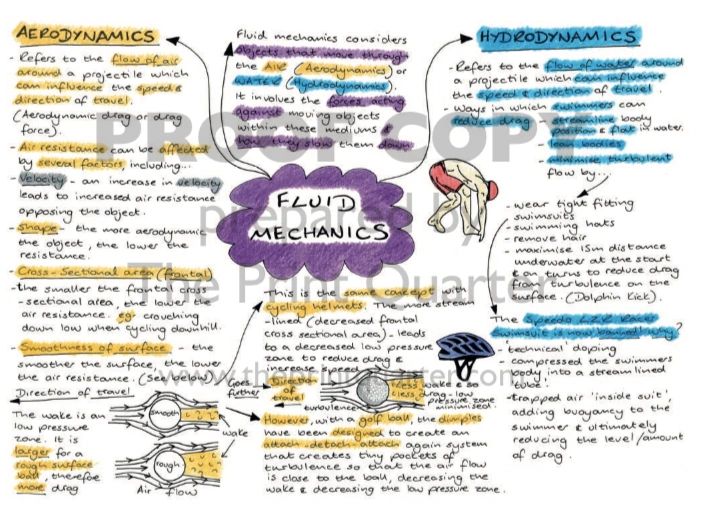 AERODYNAMICS
- Refers to the flow of air
around a projectile which
can influence the speed &
direction of travel.
(Aerodynamic drag or drag
force).
- Air resistance can be affected
by several factors, including...
- Velocity - an increase in velocity
leads to increased air resistance
opposing the object.
- Shape - the more aerodynamic
the object, the lower the
resistance.
- Cross-Sectional area (frontal)
- the smaller the frontal cross
-sectional area, the lower the
air resistance. eg crouching
down low when cycling downhill.
- Smoothness of surface - the
smoother the surface, the lower
the air resistance. (See below)
Direction of travel
The wake is an
low pressure
zone. It is
larger for a
rough surface
ball, therefore
more drag
smooth
rough
wake
Air flow
Fluid mechanics considers
objects that move through
the AIR (Aerodynamics) or
WATER (Hydrodynamics).
It involves the forces acting
against moving objects
within these mediums &
how they slow them down
FLUID
MECHANICS
This is the same concept with
cycling helmets. The more stream
-lined (decreased frontal
cross sectional area) - leads
to a decreased low pressure
zone to reduce drag &
increase speed
Goes
further
Direction
of
travel
turbulence
Less wake & so
less drag - low
pressure zone
minimised
However, with a golf ball, the dimples
have been designed to create an
attach-detach-attach again system
that creates tiny pockets of
turbulence so that the air flow
is close to the ball, decreasing the
wake & decreasing the low pressure zone.
HYDRODYNAMICS
- Refers to the flow of water around
a projectile which can influence
the speed & direction of travel.
- Ways in which swimmers can
reduce drag
- streamline body
position & flat in water.
- lean bodies
- minimise turbulent
flow by...
- wear tight fitting
swimsuits
- swimming hats
- remove hair
- maximise 15m distance
underwater at the start
& on turns to reduce drag
from turbulence on the
surface. (Dolphin Kick).
The Speedo LZR Racer
Swimsuit is now banned why?
- 'technical' doping
- compressed the swimmers
body into a streamlined
tube.
- trapped air 'inside suit',
adding buoyancy to the
swimmer & ultimately
reducing the level/amount
of drag.
PROOF COPY
prepared by
The Print Quarter